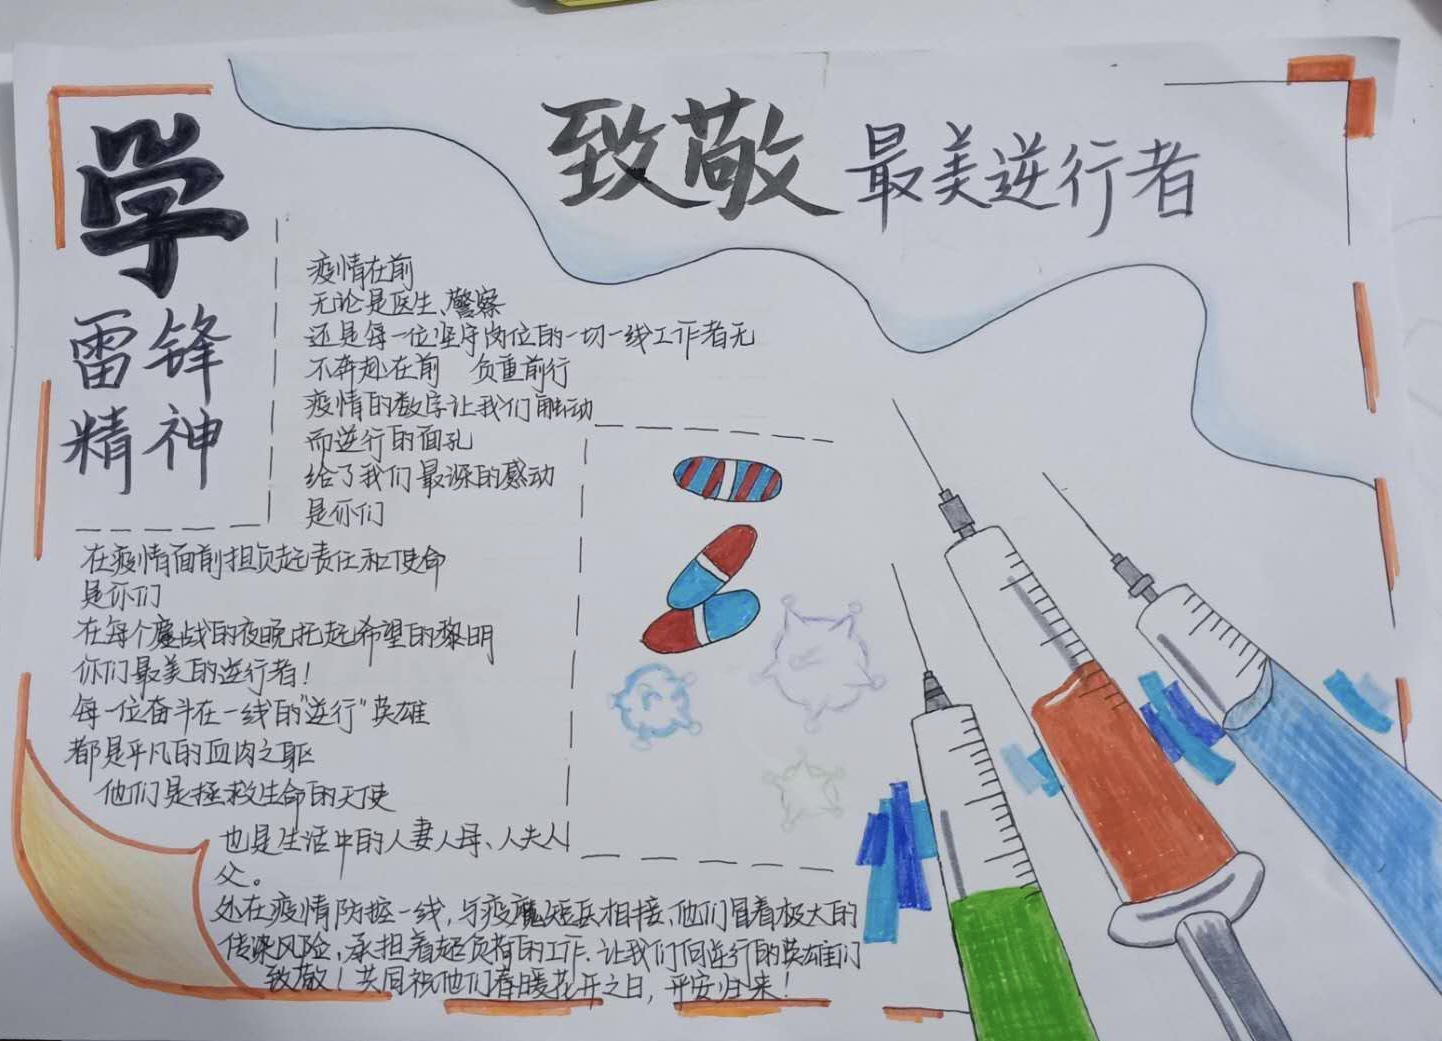 致敬最美逆行者
学
雷锋
精神
疫情在前
无论是医生、警察
还是每一位坚守岗位的一切一线工作者无
不奔赴在前 负重前行
疫情的数字让我们触动
而逆行的面孔
给了我们最深的感动
是你们
在疫情面前担负起责任和使命
是你们
在每个鏖战的夜晚托起希望的黎明
你们最美的逆行者！
每一位奋斗在一线的"逆行"英雄
都是平凡的血肉之躯
他们是拯救生命的天使
也是生活中的人妻人母、人夫人
父。
处在疫情防控一线，与疫魔短兵相接、他们冒着极大的
传染风险，承担着超负荷的工作、让我们向逆行的英雄们
致敬！共同祝他们春暖花开之日，平安归来！